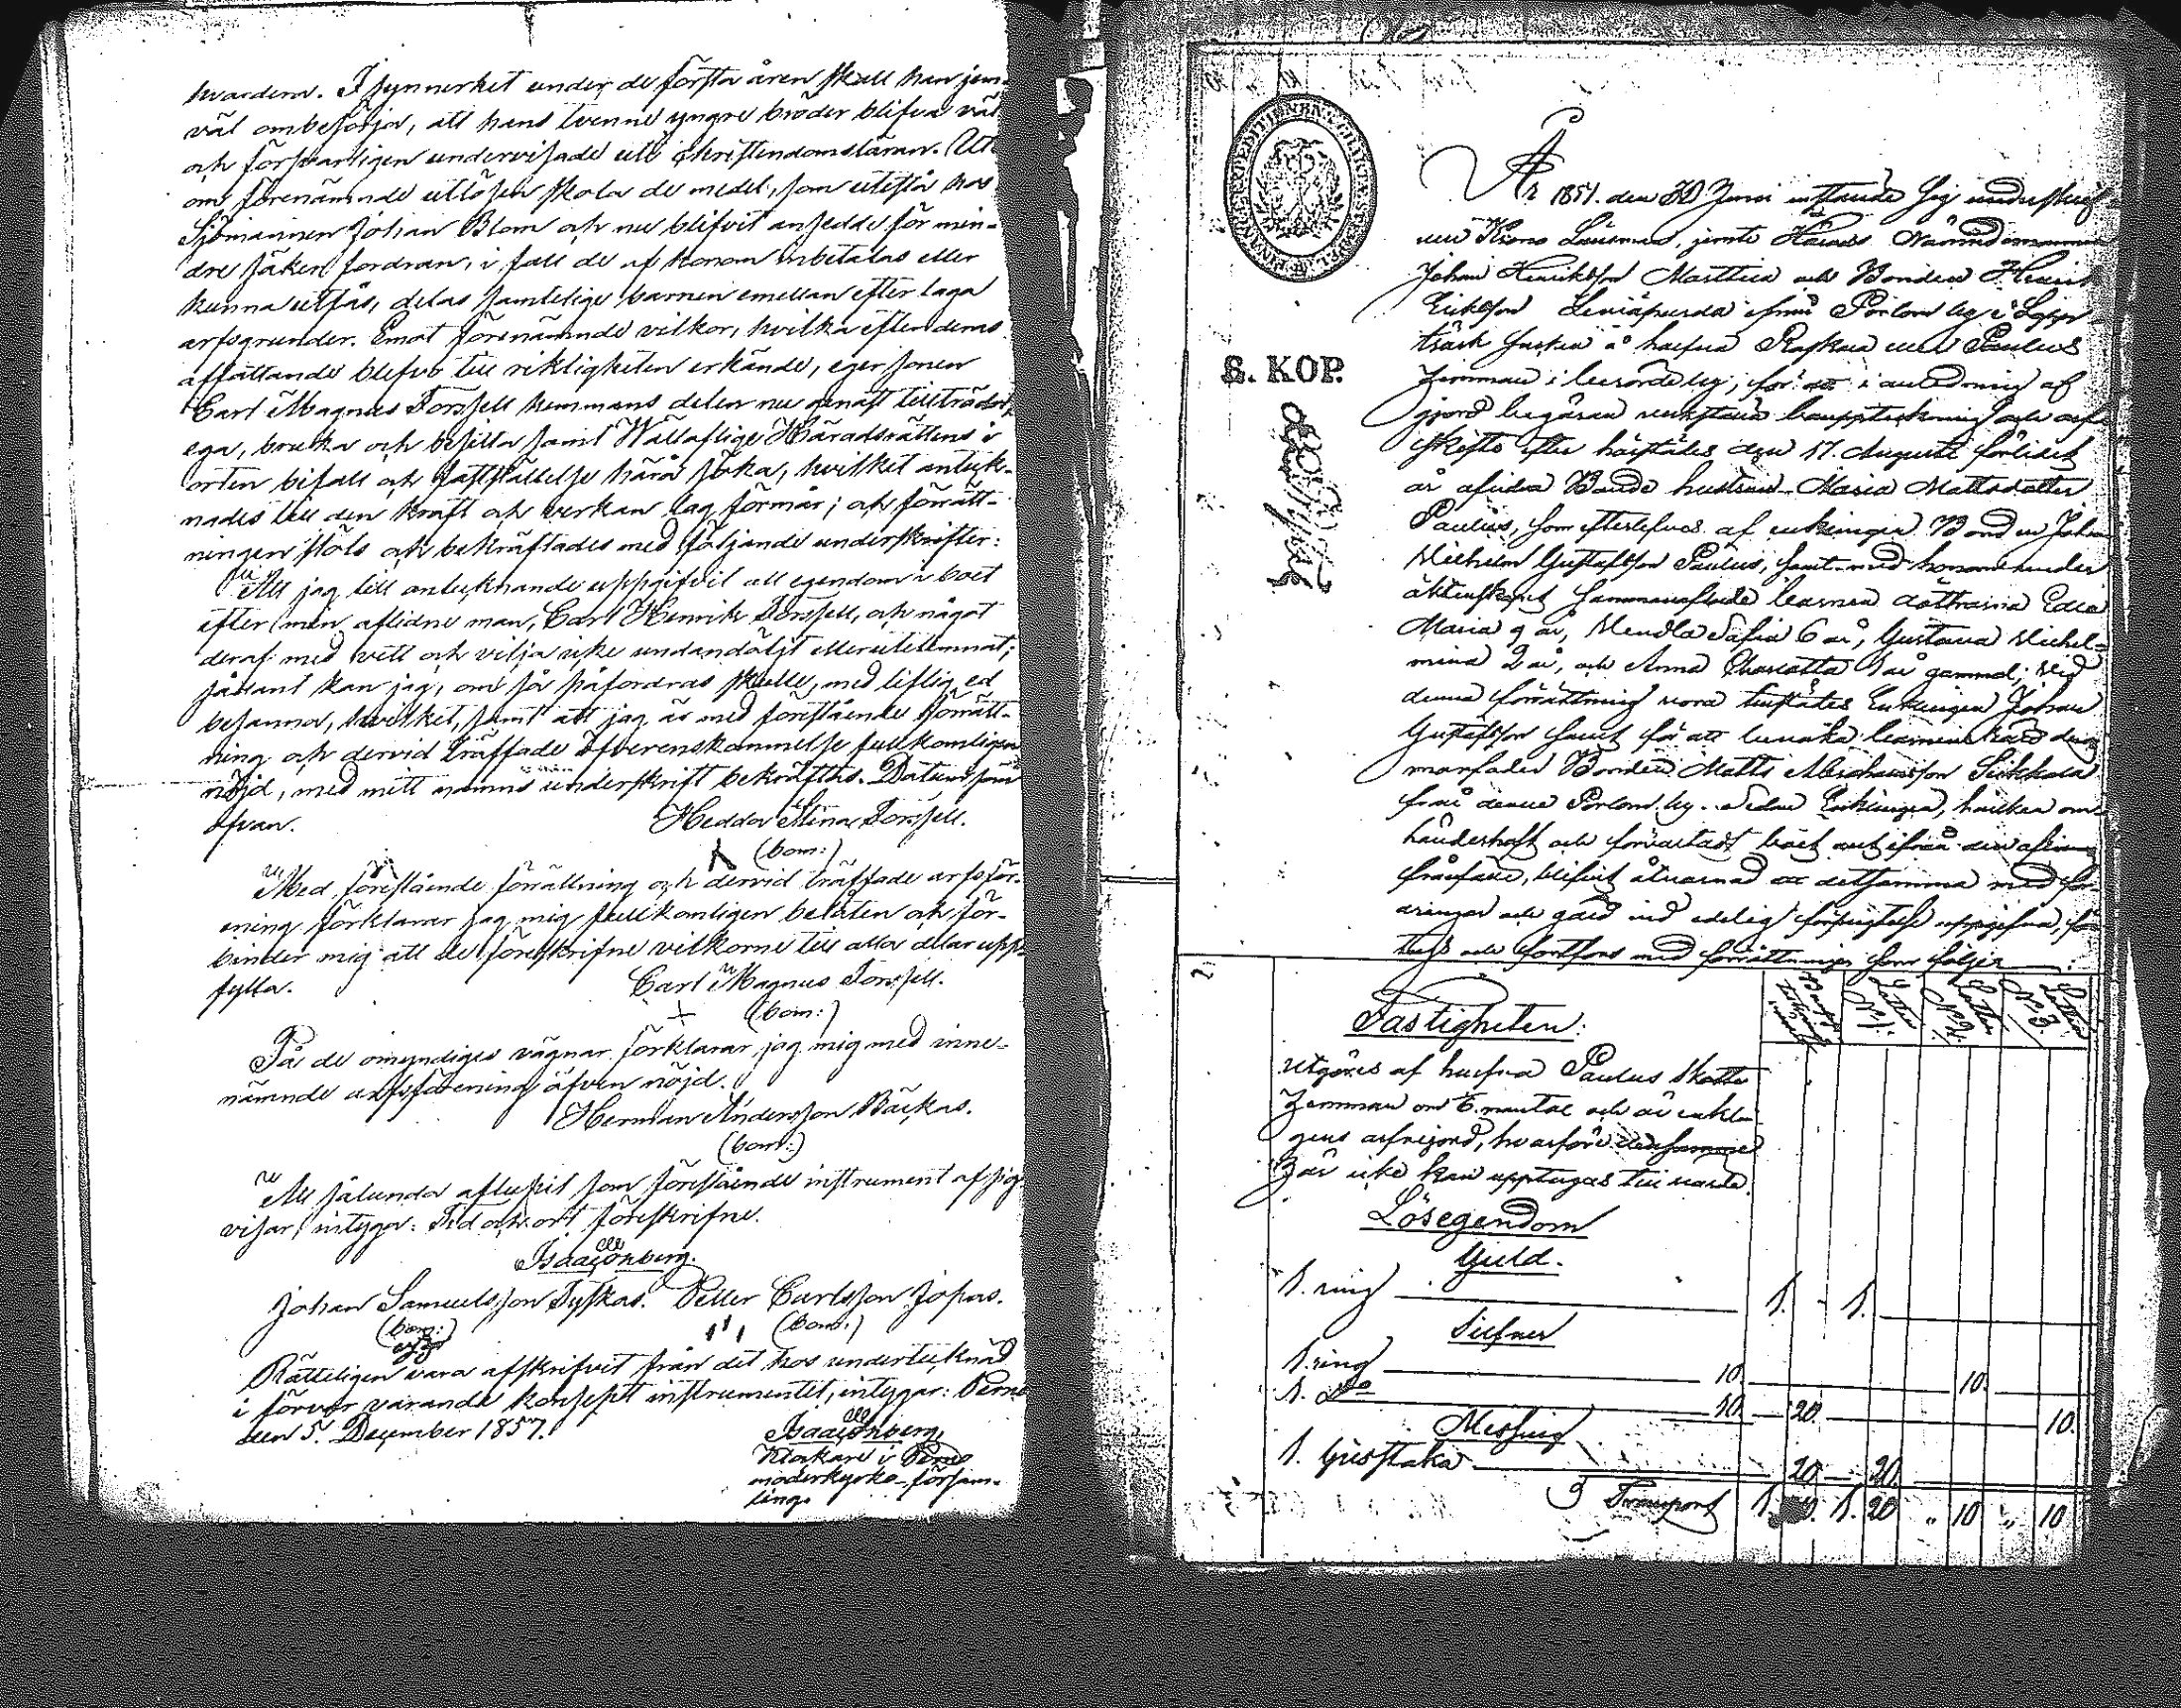 hvardera. I synnerhet under de första åren skall han jem-
väl ombesörja, att hans tvenne yngre bröder blifva väl
och försvarligen undervisade uti christendomsläran. Ut-
om förenämnde utlösen skola de medel, som utestå hos
Sjömannen Johan Blom och nu blifvit ansedde för min-
dre säker fordran, i fall de af honom inbetalas eller
kunna utfås, delas samtelige barnen emellan efter laga
arfsgrunder. Emot förenämnde vilkor, hvilka efter deras
affattande blefvo till riktigheten erkände, eger sonen
Carl Magnus Forssell hemmans delen nu genast tillträda,
ega, bruka och besitta samt Wällaflige Häradsrättens i
orten bifall och fastställelse härå söka, hvilket anteck-
nades till den kraft och verkan lag förmår; och förrätt-
ningen slöts och bekräftades med följande underskrifter:
Att jag till antecknande uppgifvit all egendom i boet
efter min aflidne man, Carl Henrik Forssell, och något
deraf med vett och vilja icke undandöljt eller utelemnat;
sådant kan jag, om så påfordras skulle, med liflig ed
besanna, hvilket, samt att jag är med förestående förrätt-
ning och dervid träffade öfverenskommelse fullkomligen
nöjd, med mitt namns underskrift bekräftas. Datum som
ofvan. Hedda Stina Forssell.
(bom:)
Med förestående förrättning och dervid träffade arfsför-
ening förklarar jag mig fullkomligen belåten och för-
binder mig att de föreskrifne vilkorne till alla delar upp-
fylla. Carl Magnus Forssell.
(bom:)
På de omyndiges vägnar förklarar jag mig med inne-
nämnde arfsförening äfven nöjd.
Herman Andersson Bäckas.
(bom:)
Att sålunda aflupit som förestående instrument af sig
visar, intyga: Tid och ort föreskrifne.
Isaac Önberg.
Johan Samuelsson Tyskas. Petter Carlsson Jopas.
(bom:) (bom:)
Rätteligen vara afskrifvit från det hos undertecknad
i förvar varande koncept instrumentet, intygar: Perno
den 5. December 1857.
Isaac Önberg,
Klockare i Perno
moderkyrko-försam-
ling.
S. KOP.
År 1857. den 30 Juni instälde sig undertecknad
Krono Länsman, jemte Härads Nämndemannen
Johan Henriksson Marttila och Bonden Henrik
Eriksson från Porlom by i Lapp-
träsk Socken å halfva Paulus
Hemman i berörde by, för att i anledning af
gjord begäran verkställa bouppteckning och arf-
skifte efter härstädes den 17. Augusti förlidet
år aflidna Bonde hustrun Maria Mattsdotter
Paulus, som efterlefves af enkling Bonden Johan
Wilhelm Gustafsson Paulus, samt med honom under
äktenskapet sammanaflade barnen döttrarna Edla
Maria 9 år, Wendla Sofia 6 år, Gustava Wilhel-
mina 2 år, och Anna Charlotta 1 år gammal; Vid
denna förrättning voro tillstädes Enklingen Johan
Gustafsson samt för att bevaka barnens rätt deras
morfader Bonden Matts Abrahamsson Sikkala
från denna Porlom by. Sedan Enklingen, hvilken om
händerhaft och förvaltat boet
blifvit åtvarnad att detsamma med for-
dringar och gäld vid edelig förpligtelse uppgifva, fö-
retogs och fortfors med förrättningen som följer:
Bouppteckningsvärde Lotten N:o 1. Lotten N:o 2. Lotten N:o 3.
Fastigheten:
Utgöres af halfva Paulus Skatte
Hemman om mantal och är enklin-
gens arfvejord, hvarföre detsamma
här icke kan upptagas till värde.
Lösegendom
Guld.
1. ring 1. 1.
Silfver
1. ring 10. 10.
1. d:o 10. 20. 10.
Messing
1. ljusstaka 20. 20.
Transport 1. 40. 1. 20 „ 10 „ 10